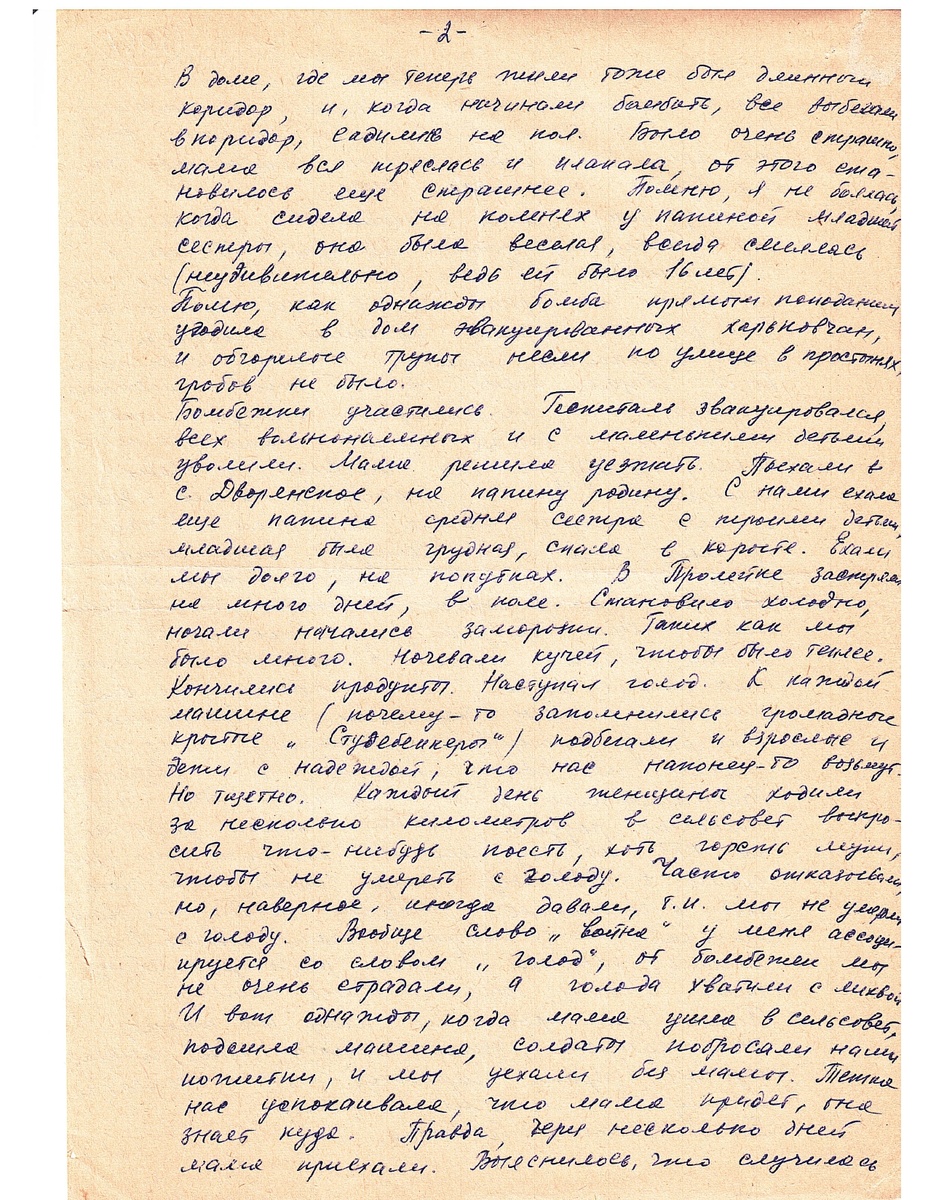 -2-
В доме, где мы теперь жили тоже был длинный
коридор, и, когда начинали бомбить, все выбегали
в коридор, садились на пол. Было очень страшно,
мама вся тряслась и плакала, от этого ста-
новилось еще страшнее. Помню, я не боялась,
когда сидела на коленях у папиной младшей
сестры, она была веселая, всегда смеялась
(неудивительно, ведь ей было 16 лет).
Помню, как однажды бомба прямым попаданием
угодила в дом эвакуированных харьковчан,
и обгорелые трупы несли по улице в простынях,
гробов не было.
Бомбежки участились. Госпиталь эвакуировался,
всех вольнонаемных и с маленькими детьми
уволили. Мама решила уезжать. Поехали в
с. Дворянское, на папину родину. С нами ехала
еще папина средняя сестра с троими детьми,
младшая была грудная, спала в корыте. Ехали
мы долго, на попутках. В Пролейке застряли
на много дней, в поле. Становило холодно,
ночами начались заморозки. Таких как мы
было много. Ночевали кучей, чтобы было теплее.
Кончились продукты. Наступал голод. К каждой
машине (почему-то запомнились громадные
крытые „Студебеккеры") подбегали и взрослые и
дети с надеждой, что нас наконец-то возьмут.
Но тщетно. Каждый день женщины ходили
за несколько километров в сельсовет выпро-
сить что-нибудь поесть, хоть горсть муки,
чтобы не умереть с голоду. Часто отказывали,
но, наверное, иногда давали, т.к. мы не умерли
с голоду. Вообще слово „война" у меня ассоци-
ируется со словом „голод", от бомбежек мы
не очень страдали, а голода хватили с лихвой
И вот однажды, когда мама ушла в сельсовет,
подошла машина, солдаты побросали наши
пожитки, и мы уехали без мамы. Тетка
нас успокаивала, что мама придет, она
знает куда. Правда, через несколько дней
мама приехали. Выяснилось, что случилась